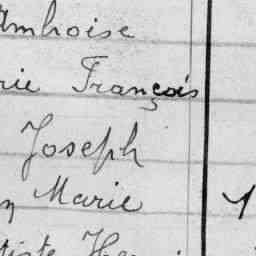 Ambroise
rie François
Joseph
n Marie
tiste Hen